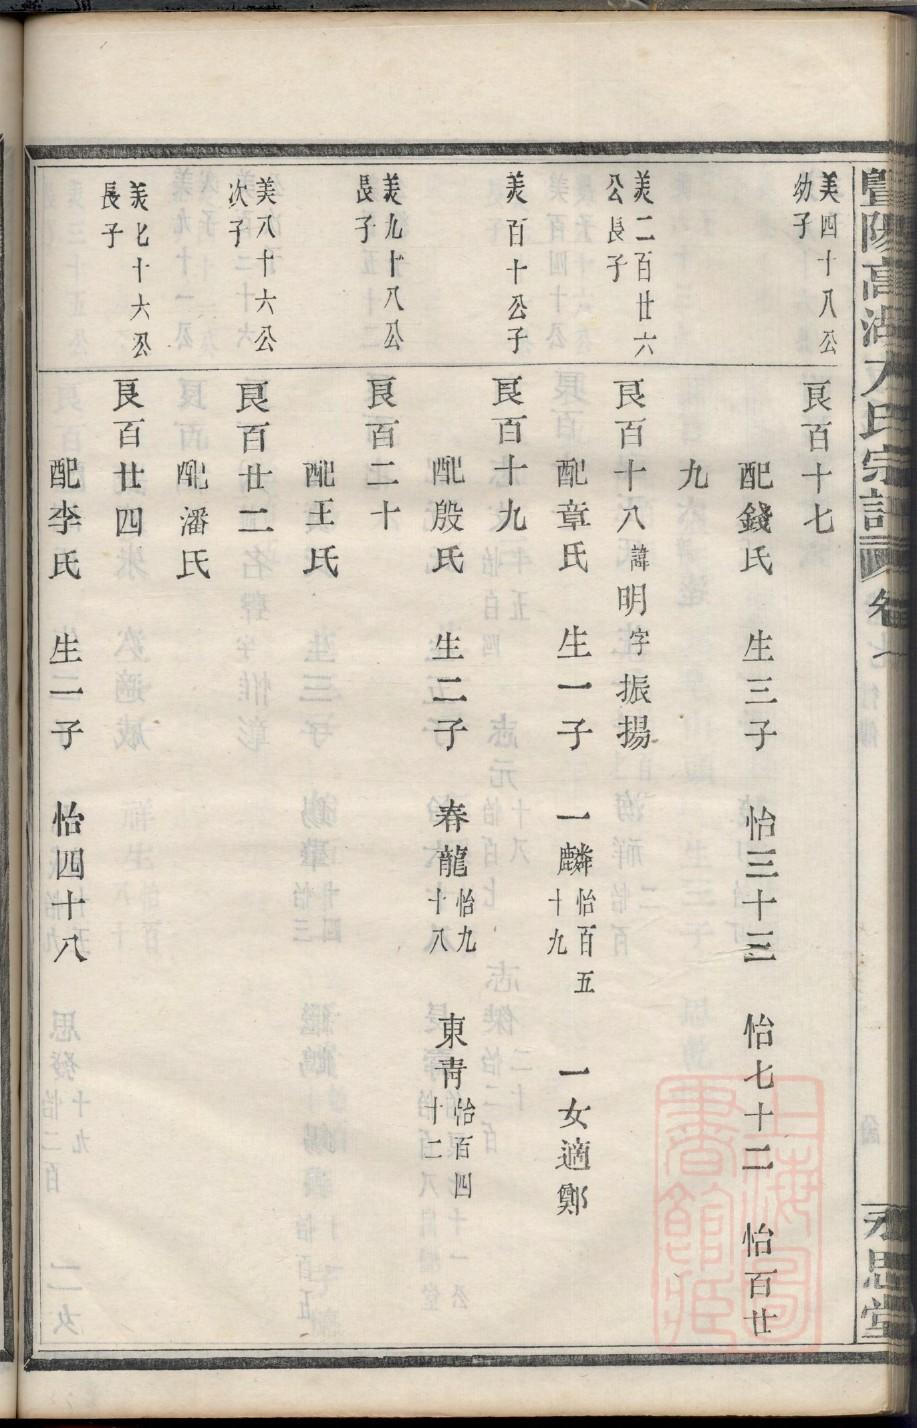 暨陽高湖方氏宗譜 卷七 永思堂
美四十八公
幼子
良百十七
配錢氏 生三子 怡三十三 怡七十二 怡百廿
九
美二百廿六
公長子
良百十八諱明字振揚
配章氏 生一子 一麟怡百五十九 一女適鄭
美百十公子
良百十九
配殷氏 生二子 春龍怡九十八 東靑怡百四十二
美九十八公
長子
良百二十
配王氏
美八十六公
次子
良百廿二
配潘氏
美七十六公
長子
良百廿四
配李氏 生一子 怡四十八
上海圖書館藏